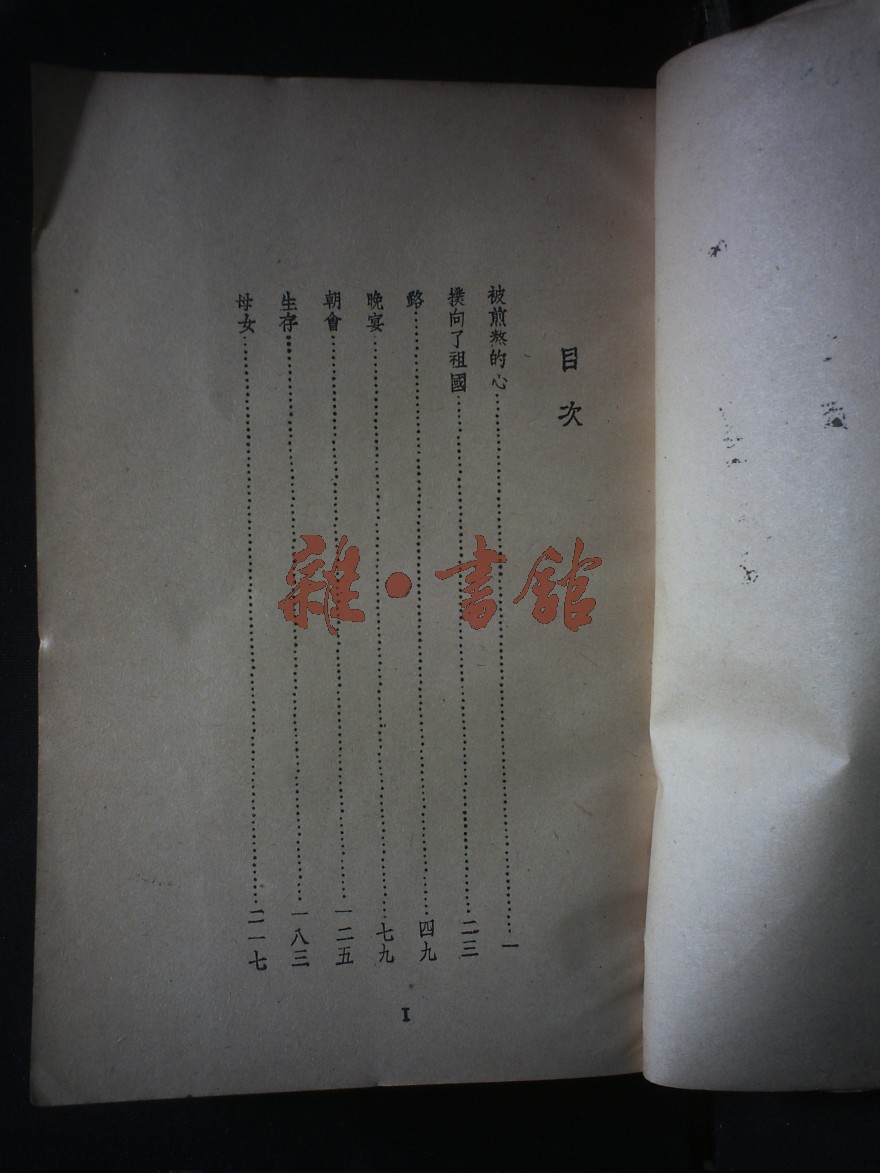 目次
被煎熬的心……一
撲向了祖國……二三
路……四九
晚宴……七九
朝會……一二五
生存……一八三
母女……二一七
I
雜·書館